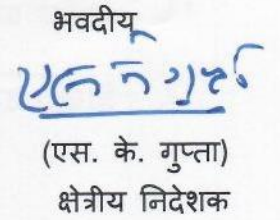 भवदीय
(एस. के. गुप्ता)
क्षेत्रीय निदेशक